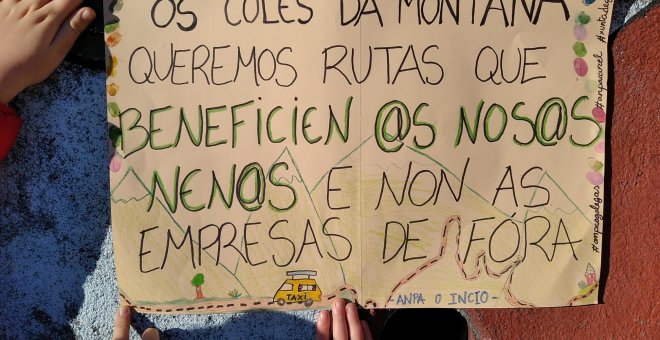 OS COLES DA MONTAÑA
QUEREMOS RUTAS QUE
BENEFICIEN @S NOS@S
NEN@S E NON AS
EMPRESAS DE FÓRA
TAXI
-ANPA O INCIO-
#anpascervantes